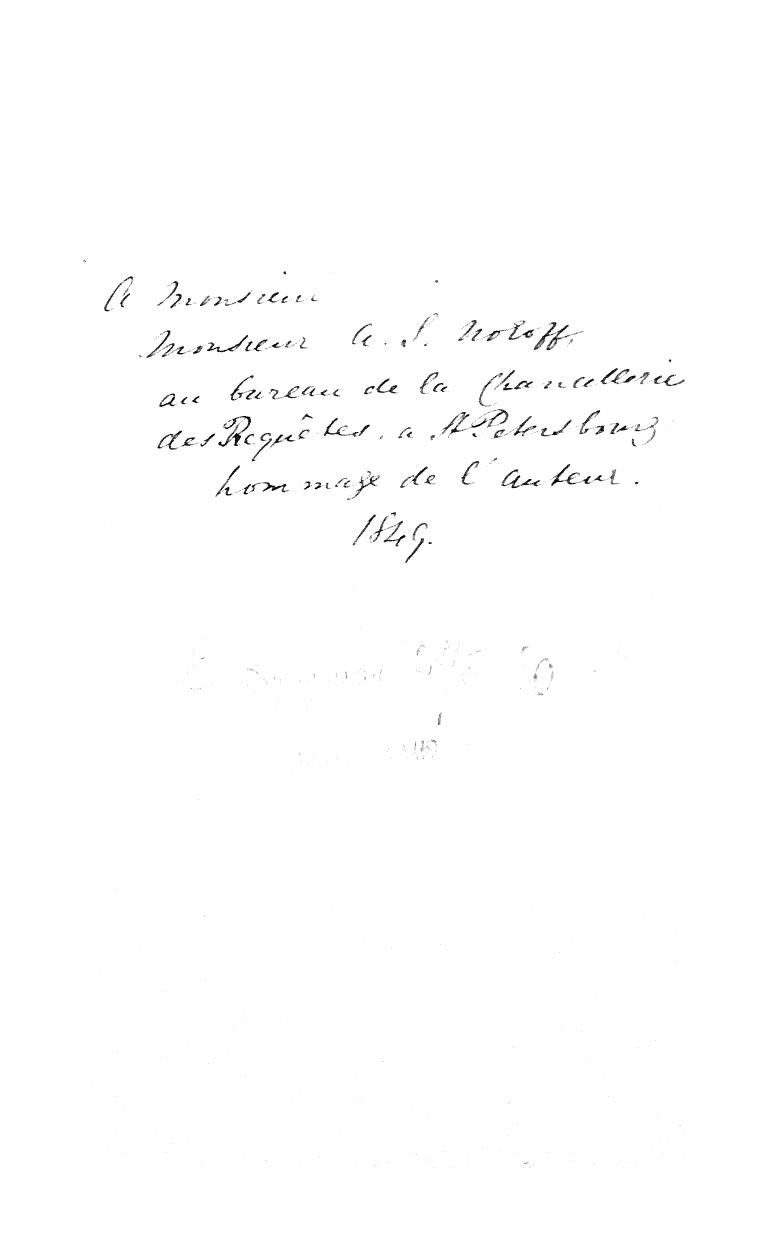 A Monsieur
Monsieur A. S. Noroff,
au bureau de la Chancellerie
des Requêtes, a St. Petersbourg
hommage de l'auteur.
1849.